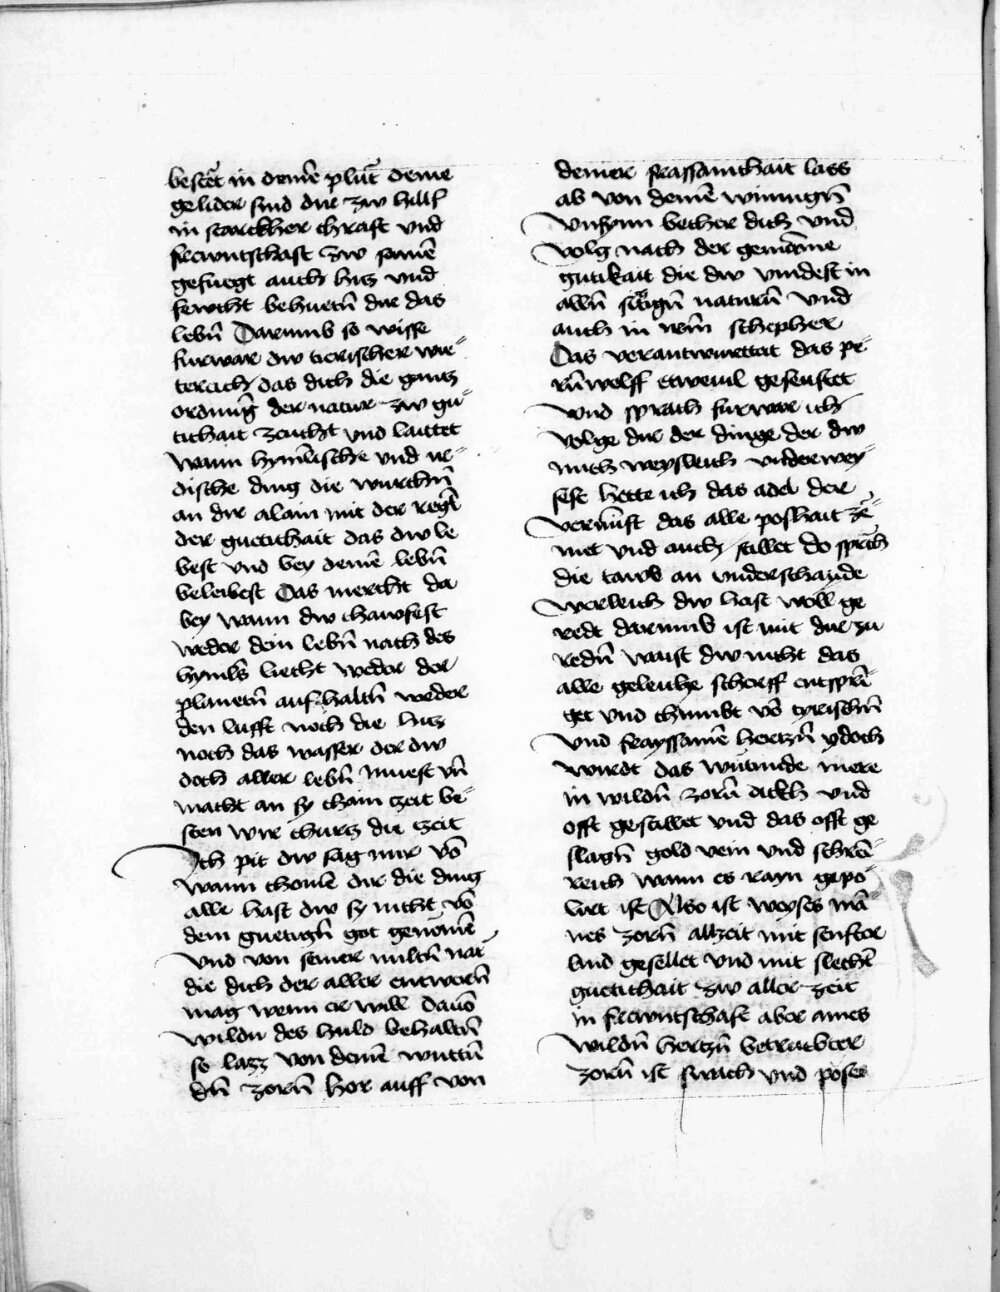 bestet in deinē plůt deine
gelider sind dir zw hilff
in starckher chraft vnd
frewntschaft zw samē
gefuegt auch hitz vnd
fewcht behuetn̄ dir das
lebn̄ Darumb so wisse
furwar dw tierischer wue-
tereich das dich die gantz
ordnung der natur zw gu-
tichait zeucht vnd laittet
wann hymlische vnd ir-
dische ding die wurchn̄
an dir alain mit der regl
der guetichait das dw le
best vnd bey deinē lebn̄
beleibest Das merckt da
bey wann dw chawfest
weder dein lebn̄ nach des
hymls liecht weder der
planetn̄ auf haltn̄ weder
den lufft noch die hitz
noch das wasser der dw
doch aller lebn̄ muest vn̄
macht an sy chain zeit be-
sten wie churtz die zeit
Ich pit dw sag mir vō
wann chomē dir die ding
alle hast dw sy nicht vō
dem guetign̄ got genomē
vnd von seiner miltn̄ nat
die dich der aller entwern̄
mag wenn er will Dauō
wildu des huld behaltn̄
so lazz von deinē wuttn̄
dn̄ zorn̄ hor auff von
deiner frassamchait lass
ab von deinē winnign̄
vnsynn becher dich vnd
volg nach der gemaine
gutikait die dw vindest in
alln̄ salign̄ naturn̄ vnd
auch in irm schepher
Das verantwurttat das pe-
rn̄wolff etweuil gesenftet
vnd sprach furwar ich
volge dir der dinge der dw
mich weysleich vnderwey-
sest hette ich das adel der
vernufft das alle poshait ze-
met vnd auch stillet do sprach
die tawb an vnderschayde
werleich dw hast woll ge
redt darumb ist mit dir zu
redn̄ waist dw nicht das
alle geleiche scherff entsprī-
get vnd chumbt vō tyrischn̄
vnd frayssamē hertzn̄ ydoch
wirdt das wutunde mere
in wildn̄ zorn̄ dickh vnd
offt gestillet vnd das offt ge
slagn̄ gold vein vnd schon-
reich wann es rayn gepo-
liret ist Also ist weyses mā
nes zorn̄ allzeit mit senfter
lind gesellet vnd mit slechter
guetichait zw aller zeit
in frewntschaft aber aines
wildn̄ hertzn̄ betrachter
zorn̄ ist swach vnd poser